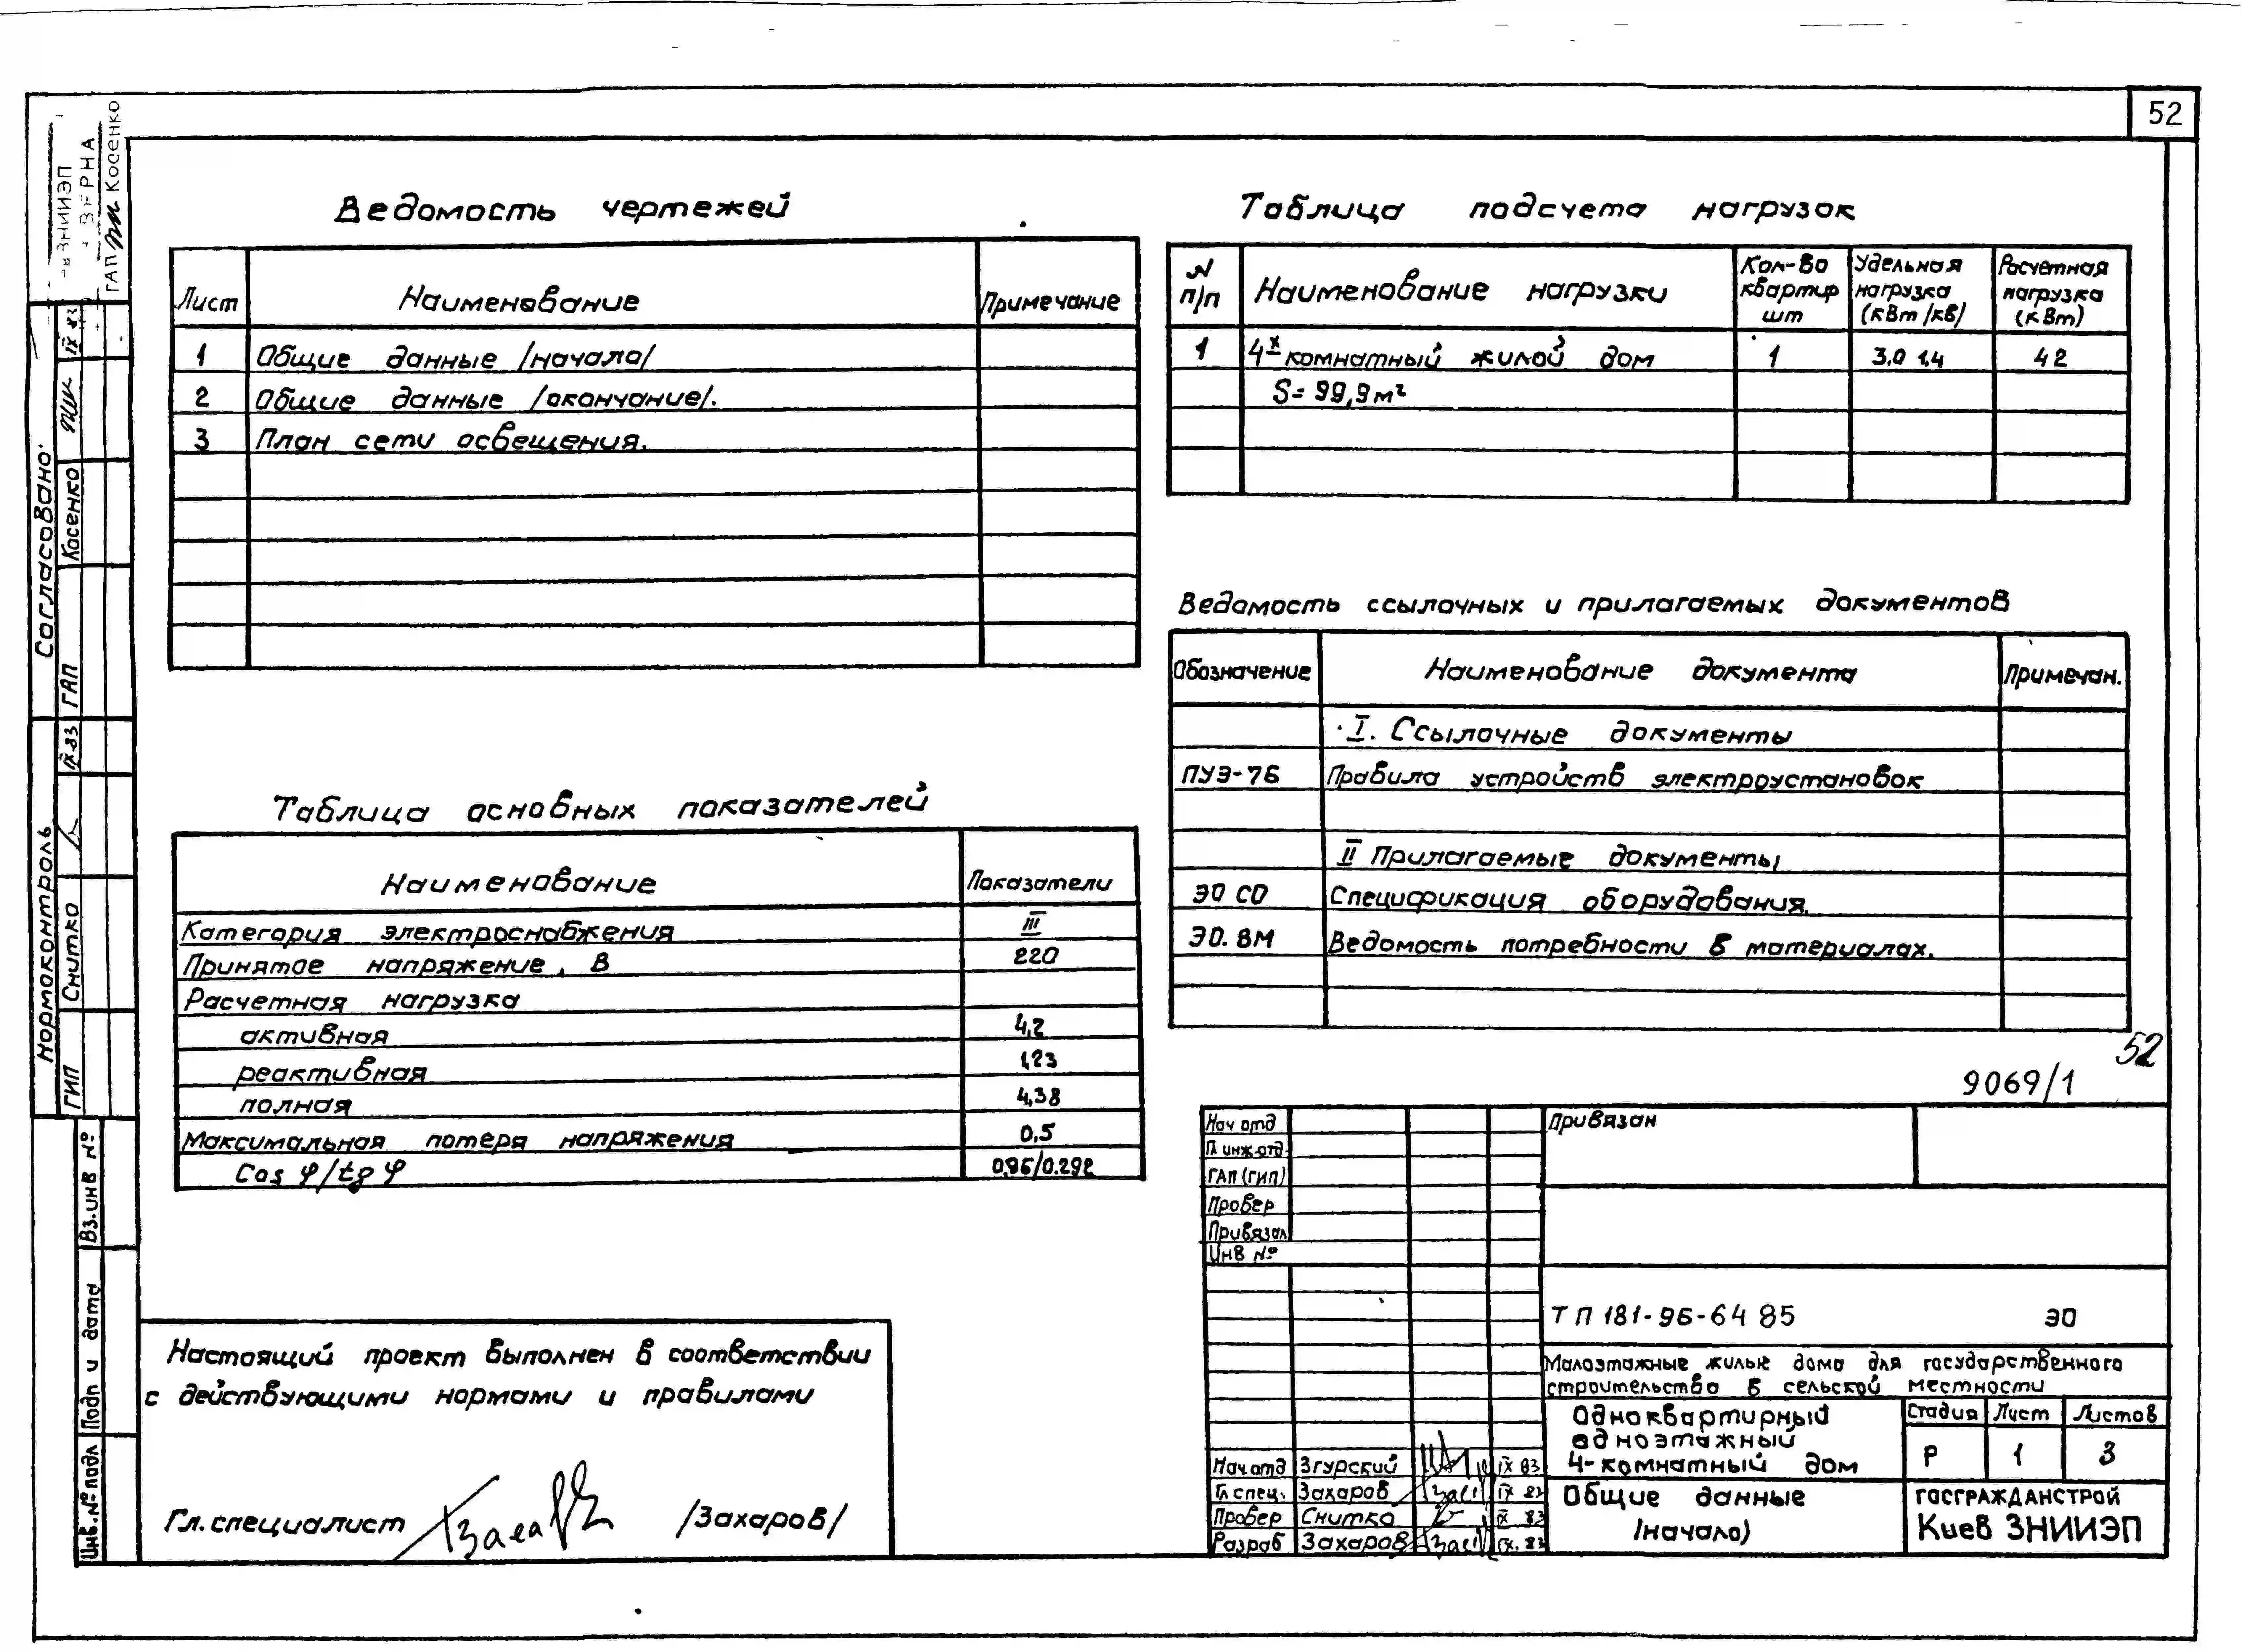 52
Ведомость чертежей
Лист Наименование Примечание
1 Общие данные /начало/
2 Общие данные /окончание/.
3 План сети освещения.
Таблица подсчета нагрузок
N п/п Наименование нагрузки Кол-во квартир шт Удельная нагрузка (кВт/кв/ Расчетная нагрузка (кВт)
1 4х комнатный жилой дом 1 3.0 1.4 4 2
S= 99,9м²
Таблица основных показателей
Наименование Показатели
Категория электроснабжения III
Принятое напряжение, В 220
Расчетная нагрузка
активная 4,2
реактивная 1,23
полная 4,38
Максимальная потеря напряжения 0.5
Cos φ/tg φ 0,96/0.292
Ведомость ссылочных и прилагаемых документов
Обозначение Наименование документа Примечан.
I. Ссылочные документы
ПУЭ-76 Правила устройств электроустановок
II Прилагаемые документы
ЭО СО Спецификация оборудования.
ЭО. ВМ Ведомость потребности в материалах.
52
9069/1
Настоящий проект выполнен в соответствии
с действующими нормами и правилами
Гл. специалист /Захаров/
Нач отд
Гл инж.отд.
ГАП (ГИП)
Провер
Привязал
Инв №
Привязан
ТП 181-96-64 85 ЭО
Малоэтажные жилые дома для государственного
строительства в сельской местности
Одноквартирный
одноэтажный
4-комнатный дом
Стадия Лист Листов
Р 1 3
Общие данные
/начало)
ГОСГРАЖДАНСТРОЙ
Киев ЗНИИЭП
Нач.отд Згурский IX 83
Гл спец. Захаров IX 83
Провер Снитко IX 83
Разраб Захаров IX. 83
ЗНИИЭП
ВЕРНА
ГАП Косенко
Согласовано:
ГАП Косенко IX 83
Нормоконтроль
ГИП Снитко IX 83
Вз.инв №
Подп и дата
Инв.№ подл